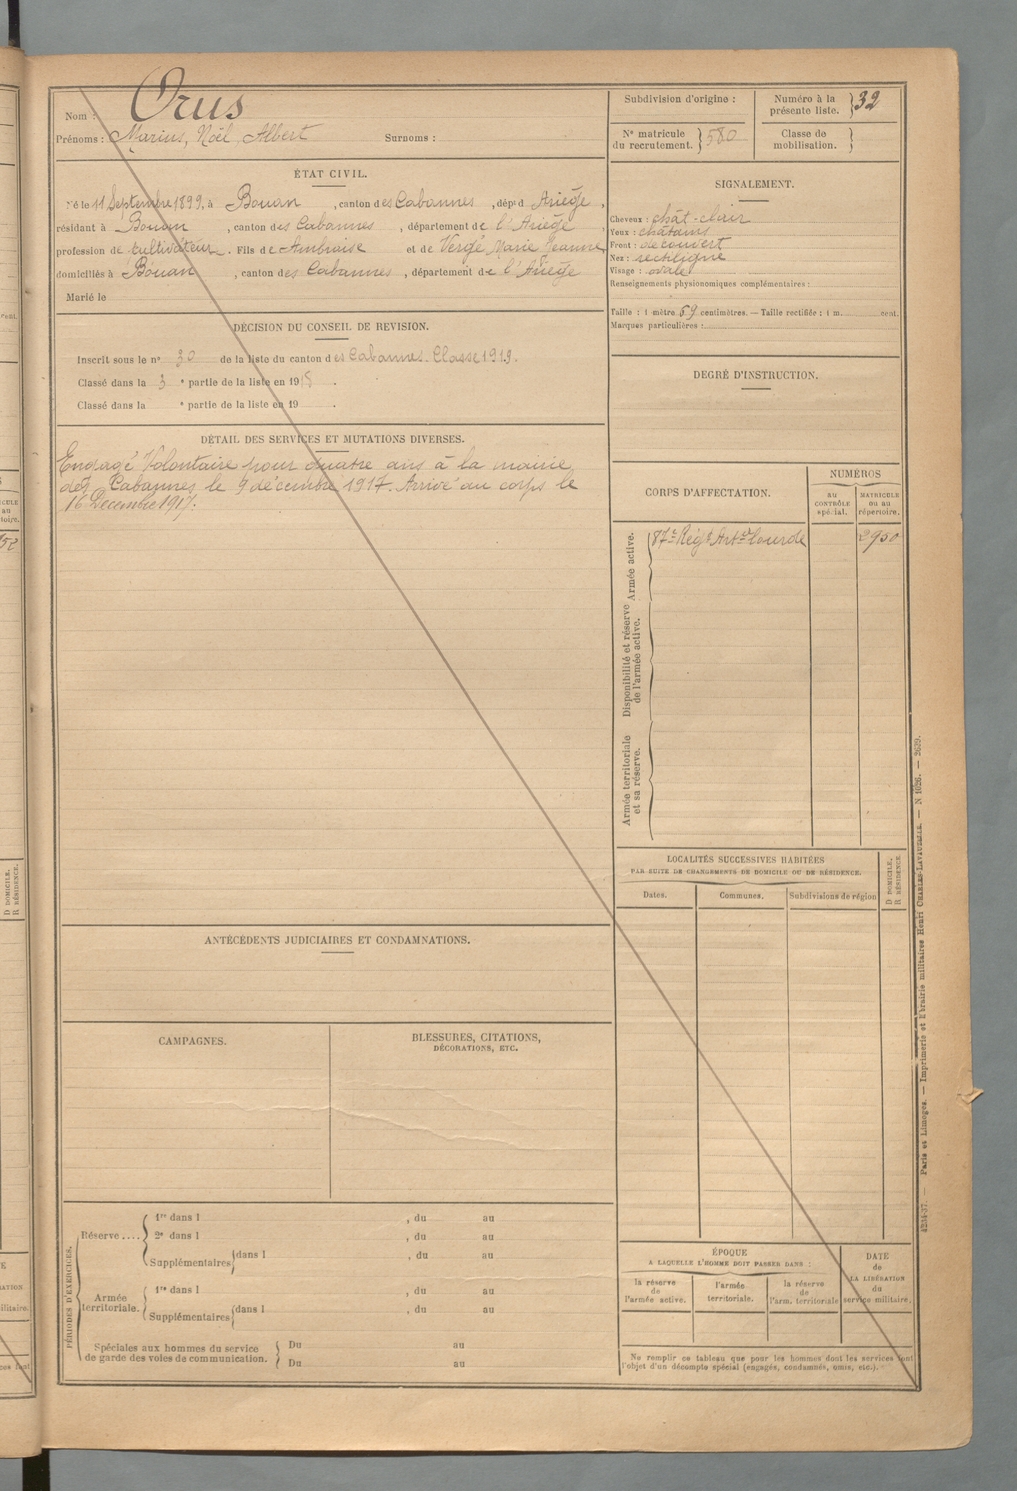 Nom : Orus
Prénoms : Marius, Noël, Albert Surnoms :
ÉTAT CIVIL.
Né le 11 Septembre 1899, à Bouan, canton des Cabannes, dépt d Ariège,
résidant à Bouan, canton des Cabannes, département de l'Ariège,
profession de cultivateur. Fils de Ambroise et de Vergé Marie Jeanne,
domiciliés à Bouan, canton des Cabannes, département de l'Ariège
Marié le
DÉCISION DU CONSEIL DE REVISION.
Inscrit sous le n° 30 de la liste du canton des Cabannes. Classe 1919.
Classé dans la 3 e partie de la liste en 1918.
Classé dans la e partie de la liste en 19 .
DÉTAIL DES SERVICES ET MUTATIONS DIVERSES.
Engagé Volontaire pour quatre ans à la mairie
des Cabannes le 9 décembre 1917. Arrivé au corps le
16 Décembre 1917.
ANTÉCÉDENTS JUDICIAIRES ET CONDAMNATIONS.
CAMPAGNES.
BLESSURES, CITATIONS,
DÉCORATIONS, ETC.
PÉRIODES D'EXERCICES.
Réserve ....
1re dans l , du au
2e dans l , du au
Supplémentaires dans l , du au
Armée
territoriale.
1re dans l , du au
Supplémentaires dans l , du au
Spéciales aux hommes du service
de garde des voies de communication.
Du au
Du au
Subdivision d'origine :
Numéro à la
présente liste. 32
N° matricule
du recrutement. 580
Classe de
mobilisation.
SIGNALEMENT.
Cheveux : chât-clair
Yeux : châtains
Front : découvert
Nez : rectiligne
Visage : ovale
Renseignements physionomiques complémentaires :
Taille : 1 mètre 69 centimètres. — Taille rectifiée : 1 m. cent.
Marques particulières :
DEGRÉ D'INSTRUCTION.
CORPS D'AFFECTATION.
NUMÉROS
au
CONTRÔLE
spécial.
MATRICULE
ou au
répertoire.
Armée active.
87e Régt Arte Lourde 2950
Disponibilité et réserve
de l'armée active.
Armée territoriale
et sa réserve.
LOCALITÉS SUCCESSIVES HABITÉES
PAR SUITE DE CHANGEMENTS DE DOMICILE OU DE RÉSIDENCE.
Dates. Communes. Subdivisions de région
D DOMICILE.
R RÉSIDENCE.
ÉPOQUE
A LAQUELLE L'HOMME DOIT PASSER DANS :
la réserve
de
l'armée active.
l'armée
territoriale.
la réserve
de
l'arm. territoriale
DATE
de
LA LIBÉRATION
du
service militaire.
Ne remplir ce tableau que pour les hommes dont les services font
l'objet d'un décompte spécial (engagés, condamnés, omis, etc.).
4234-37. — Paris et Limoges. — Imprimerie et librairie militaires Henri CHARLES-LAVAUZELLE. — N 1026. — 2639.
D DOMICILE.
R RÉSIDENCE.